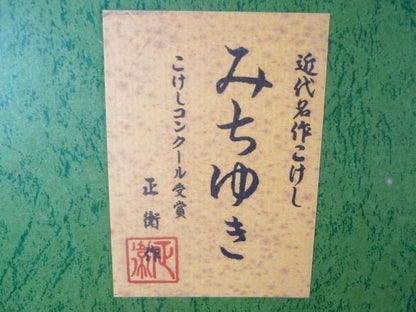 近代名作こけし
みちゆき
こけしコンクール受賞
正衛作
正衛